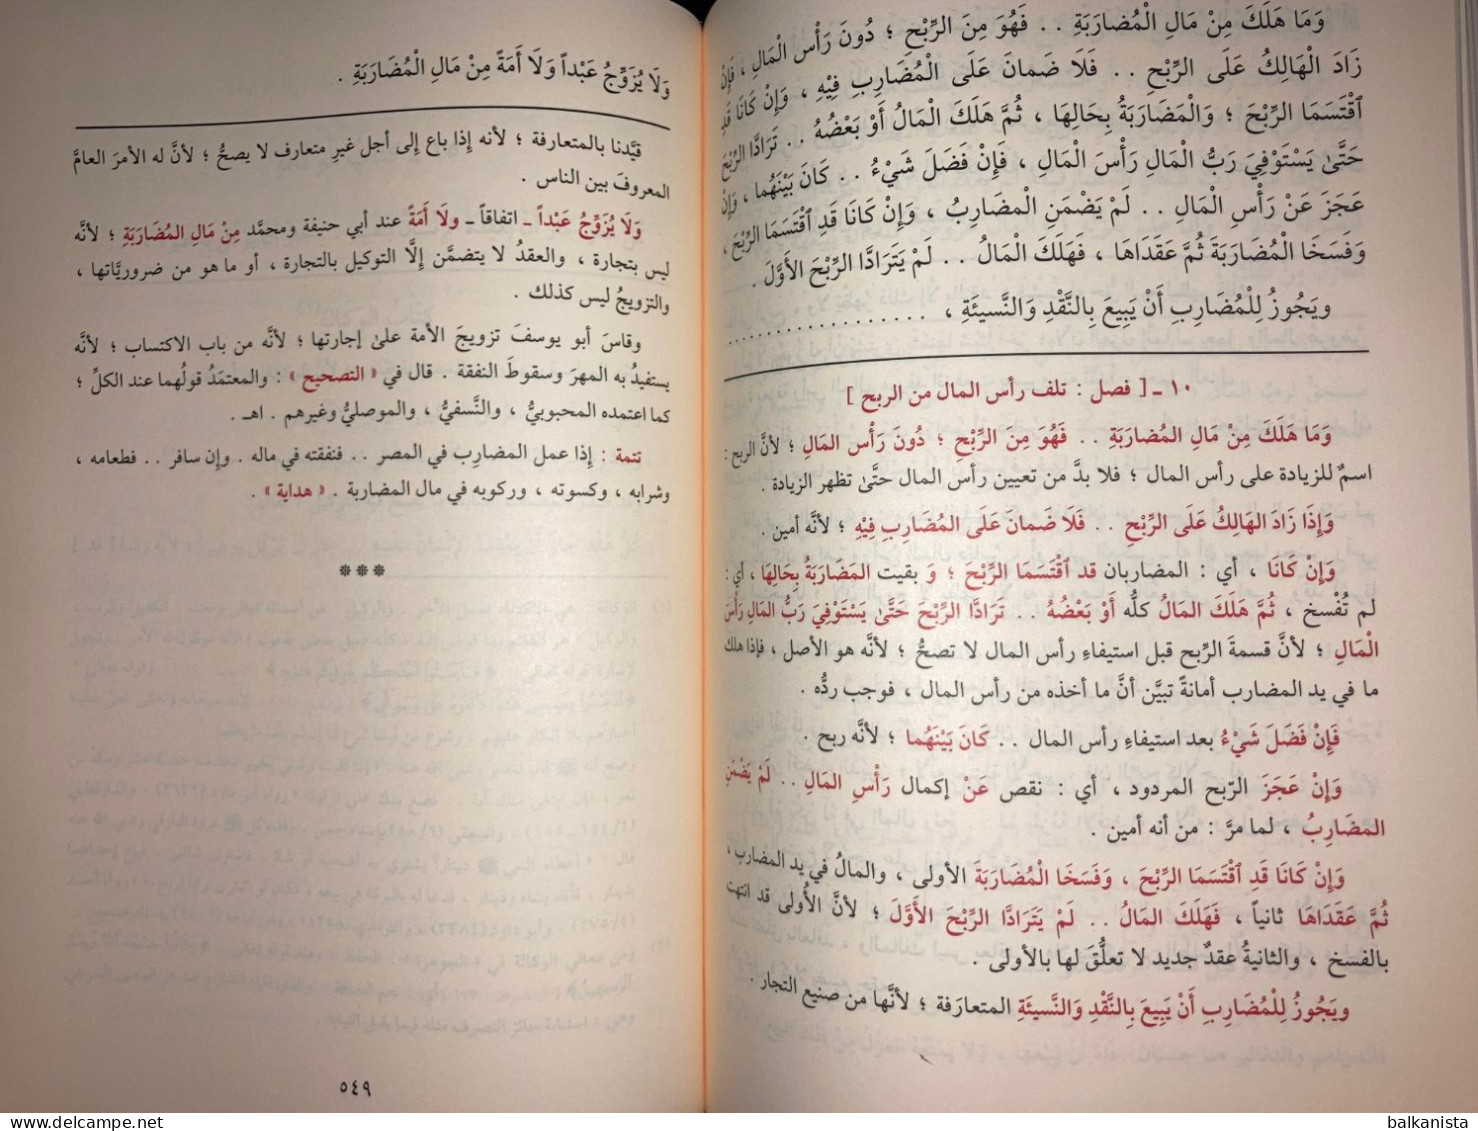 وَمَا هَلَكَ مِنْ مَالِ الْمُضارَبَةِ . . فَهُوَ مِنَ الرِّبْحِ ؛ دُونَ رَأْسِ الْمَالِ ، فَإِنْ
زَادَ الْهَالِكُ عَلَى الرِّبْحِ . . فَلَا ضَمانَ عَلَى الْمُضَارِبِ فِيْهِ ، وَإِنْ كَانَا قَدِ
ٱقْتَسَمَا الرِّبْحَ ؛ وَالْمُضَارَبَةُ بِحَالِهَا ، ثُمَّ هَلَكَ الْمَالُ أَوْ بَعْضُهُ . . تَرَادَّا الرِّبْحَ
حَتَّىٰ يَسْتَوْفِيَ رَبُّ الْمَالِ رَأْسَ الْمَالِ ، فَإِنْ فَضَلَ شَيْءٌ . . كَانَ بَيْنَهُما ، وَإِنْ
عَجَزَ عَنْ رَأْسِ الْمَالِ . . لَمْ يَضْمَنِ الْمضَارِبُ ، وَإِنْ كَانَا قَدِ ٱقْتَسَمَا الرِّبْحَ ،
وَفَسَخَا الْمُضَارَبَةَ ثُمَّ عَقَدَاهَا ، فَهَلَكَ الْمَالُ . . لَمْ يَتَرَادَّا الرِّبْحَ الأَوَّلَ .
ويَجُوزُ لِلْمُضَارِبِ أَنْ يَبِيعَ بِالنَّقْدِ وَالنَّسيئَةِ ، . . . . . . . . . . . . . . . . . . . . .
١٠ ـ [ فصل : تلف رأس المال من الربح ]
وَمَا هَلَكَ مِنْ مَالِ المُضارَبَةِ . . فَهُوَ مِنَ الرِّبْحِ ؛ دُونَ رَأْسِ المَالِ ؛ لأنَّ الربح :
اسمٌ للزيادة على رأس المال ؛ فلا بدَّ من تعيين رأس المال حتَّىٰ تظهر الزيادة .
وَإِذَا زَادَ الهَالِكُ عَلَى الرِّبْحِ . . فَلَا ضَمانَ عَلَى المُضَارِبِ فِيْهِ ؛ لأنَّه أمين .
وَإِنْ كَانَا ، أي : المضاربان قد ٱقْتَسَمَا الرِّبْحَ ؛ وَ بقيت المضَارَبَةُ بِحَالِهَا ، أي :
لم تُفْسخ ، ثُمَّ هَلَكَ المَالُ كلُّه أَوْ بَعْضُهُ . . تَرَادَّا الرِّبْحَ حَتَّىٰ يَسْتَوْفِيَ رَبُّ المَالِ رَأْسَ
الْمَالِ ؛ لأنَّ قسمةَ الرِّبح قبل استيفاءِ رأس المال لا تصحُّ ؛ لأنَّه هو الأصل ، فإذا هلك
ما في يد المضارب أمانةً تبيَّن أنَّ ما أخذه من رأس المال ، فوجب ردُّه .
فَإِنْ فَضَلَ شَيْءٌ بعد استيفاءِ رأس المال . . كَانَ بَيْنَهُما ؛ لأنَّه ربح .
وَإِنْ عَجَزَ الرّبح المردود ، أي : نقص عَنْ إكمال رَأْسِ المَالِ . . لَمْ يَضْمَنِ
المضَارِبُ ، لما مرَّ : من أنه أمين .
وَإِنْ كَانَا قَدِ ٱقْتَسَمَا الرِّبْحَ ، وَفَسَخَا الْمُضَارَبَةَ الأولى ، والمالُ في يد المضارب ،
ثُمَّ عَقَدَاهَا ثانياً ، فَهَلَكَ المَالُ . . لَمْ يَتَرَادَّا الرِّبْحَ الأَوَّلَ ؛ لأنَّ الأُولى قد انتهت
بالفسخ ، والثانيةُ عقدٌ جديد لا تعلُّقَ لها بالأولى .
ويَجُوزُ لِلْمُضَارِبِ أَنْ يَبِيعَ بِالنَّقْدِ وَالنَّسيئَةِ المتعارَفة ؛ لأنَّها من صنيع التجار .
وَلَا يُزَوِّجُ عَبْداً وَلَا أَمَةً مِنْ مَالِ الْمُضَارَبَةِ .
قيَّدنا بالمتعارفة ؛ لأنه إذا باع إلى أجل غيرِ متعارف لا يصحُّ ؛ لأنَّ له الأمرَ العامَّ
المعروفَ بين الناس .
وَلَا يُزَوِّجُ عَبْداً ـ اتفاقاً ـ ولَا أَمَةً عند أبي حنيفة ومحمَّد مِنْ مَالِ المُضَارَبَةِ ؛ لأنَّه
ليس بتجارة ، والعقدُ لا يتضمَّن إلَّا التوكيل بالتجارة ، أو ما هو من ضروريَّاتها ،
والتزويجُ ليس كذلك .
وقاسَ أبو يوسفَ تزويجَ الأمة علىٰ إجارتها ؛ لأنَّه من باب الاكتساب ؛ لأنَّه
يستفيدُ به المهرَ وسقوطَ النفقة . قال في « التصحيح » : والمعتمَدُ قولُهما عند الكلِّ ؛
كما اعتمده المحبوبيُّ ، والنَّسفيُّ ، والموصليُّ وغيرهم . اهـ .
تتمة : إذا عمل المضارِب في المصر . . فنفقته في ماله . وإن سافر . . فطعامه ،
وشرابه ، وكسوته ، وركوبه في مال المضاربة . « هداية » .
٥٤٩
balkanista